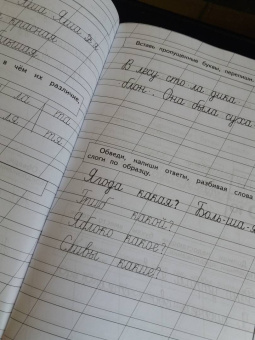 Яша Яша я я
красная
в чём их различие,
ла та
ля тя
Вставь пропущенные буквы, перепиши
В лесу сто ла дика
блон . Она была суха
Обведи, напиши ответы, разбивая слова
слоги по образцу.
Ягода какая? Боль-ша-я
Гриб какой?
Яблоко какое?
Сливы какие?